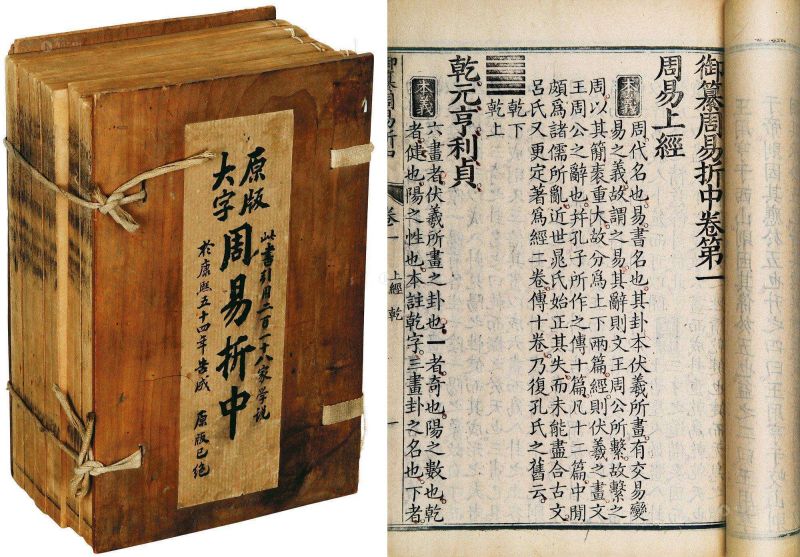 原版
大字
此書引用二百一十八家學說
周易折中
於康熙五十四年告成 原版已絕
御纂周易折中卷第一
周易上經
本義 周代名也。易書名也。其卦本伏羲所畫有交易變
易之義。故謂之易。其辭則文王周公所繫。故繫之
周。以其簡袠重大。故分為上下兩篇。經則伏羲之畫。文
王周公之辭也。并孔子所作之傳十篇。凡十二篇。中閒
頗為諸儒所亂。近世晁氏始正其失。而未能盡合古文。
呂氏又更定著為經二卷。傳十卷。乃復孔氏之舊云。
乾下
乾上
乾元亨利貞。
本義 六畫者。伏羲所畫之卦也。一者。奇也。陽之數也。乾
者。健也。陽之性也。本註乾字。三畫卦之名也。下者。
御纂周易折中 卷一 上經 乾